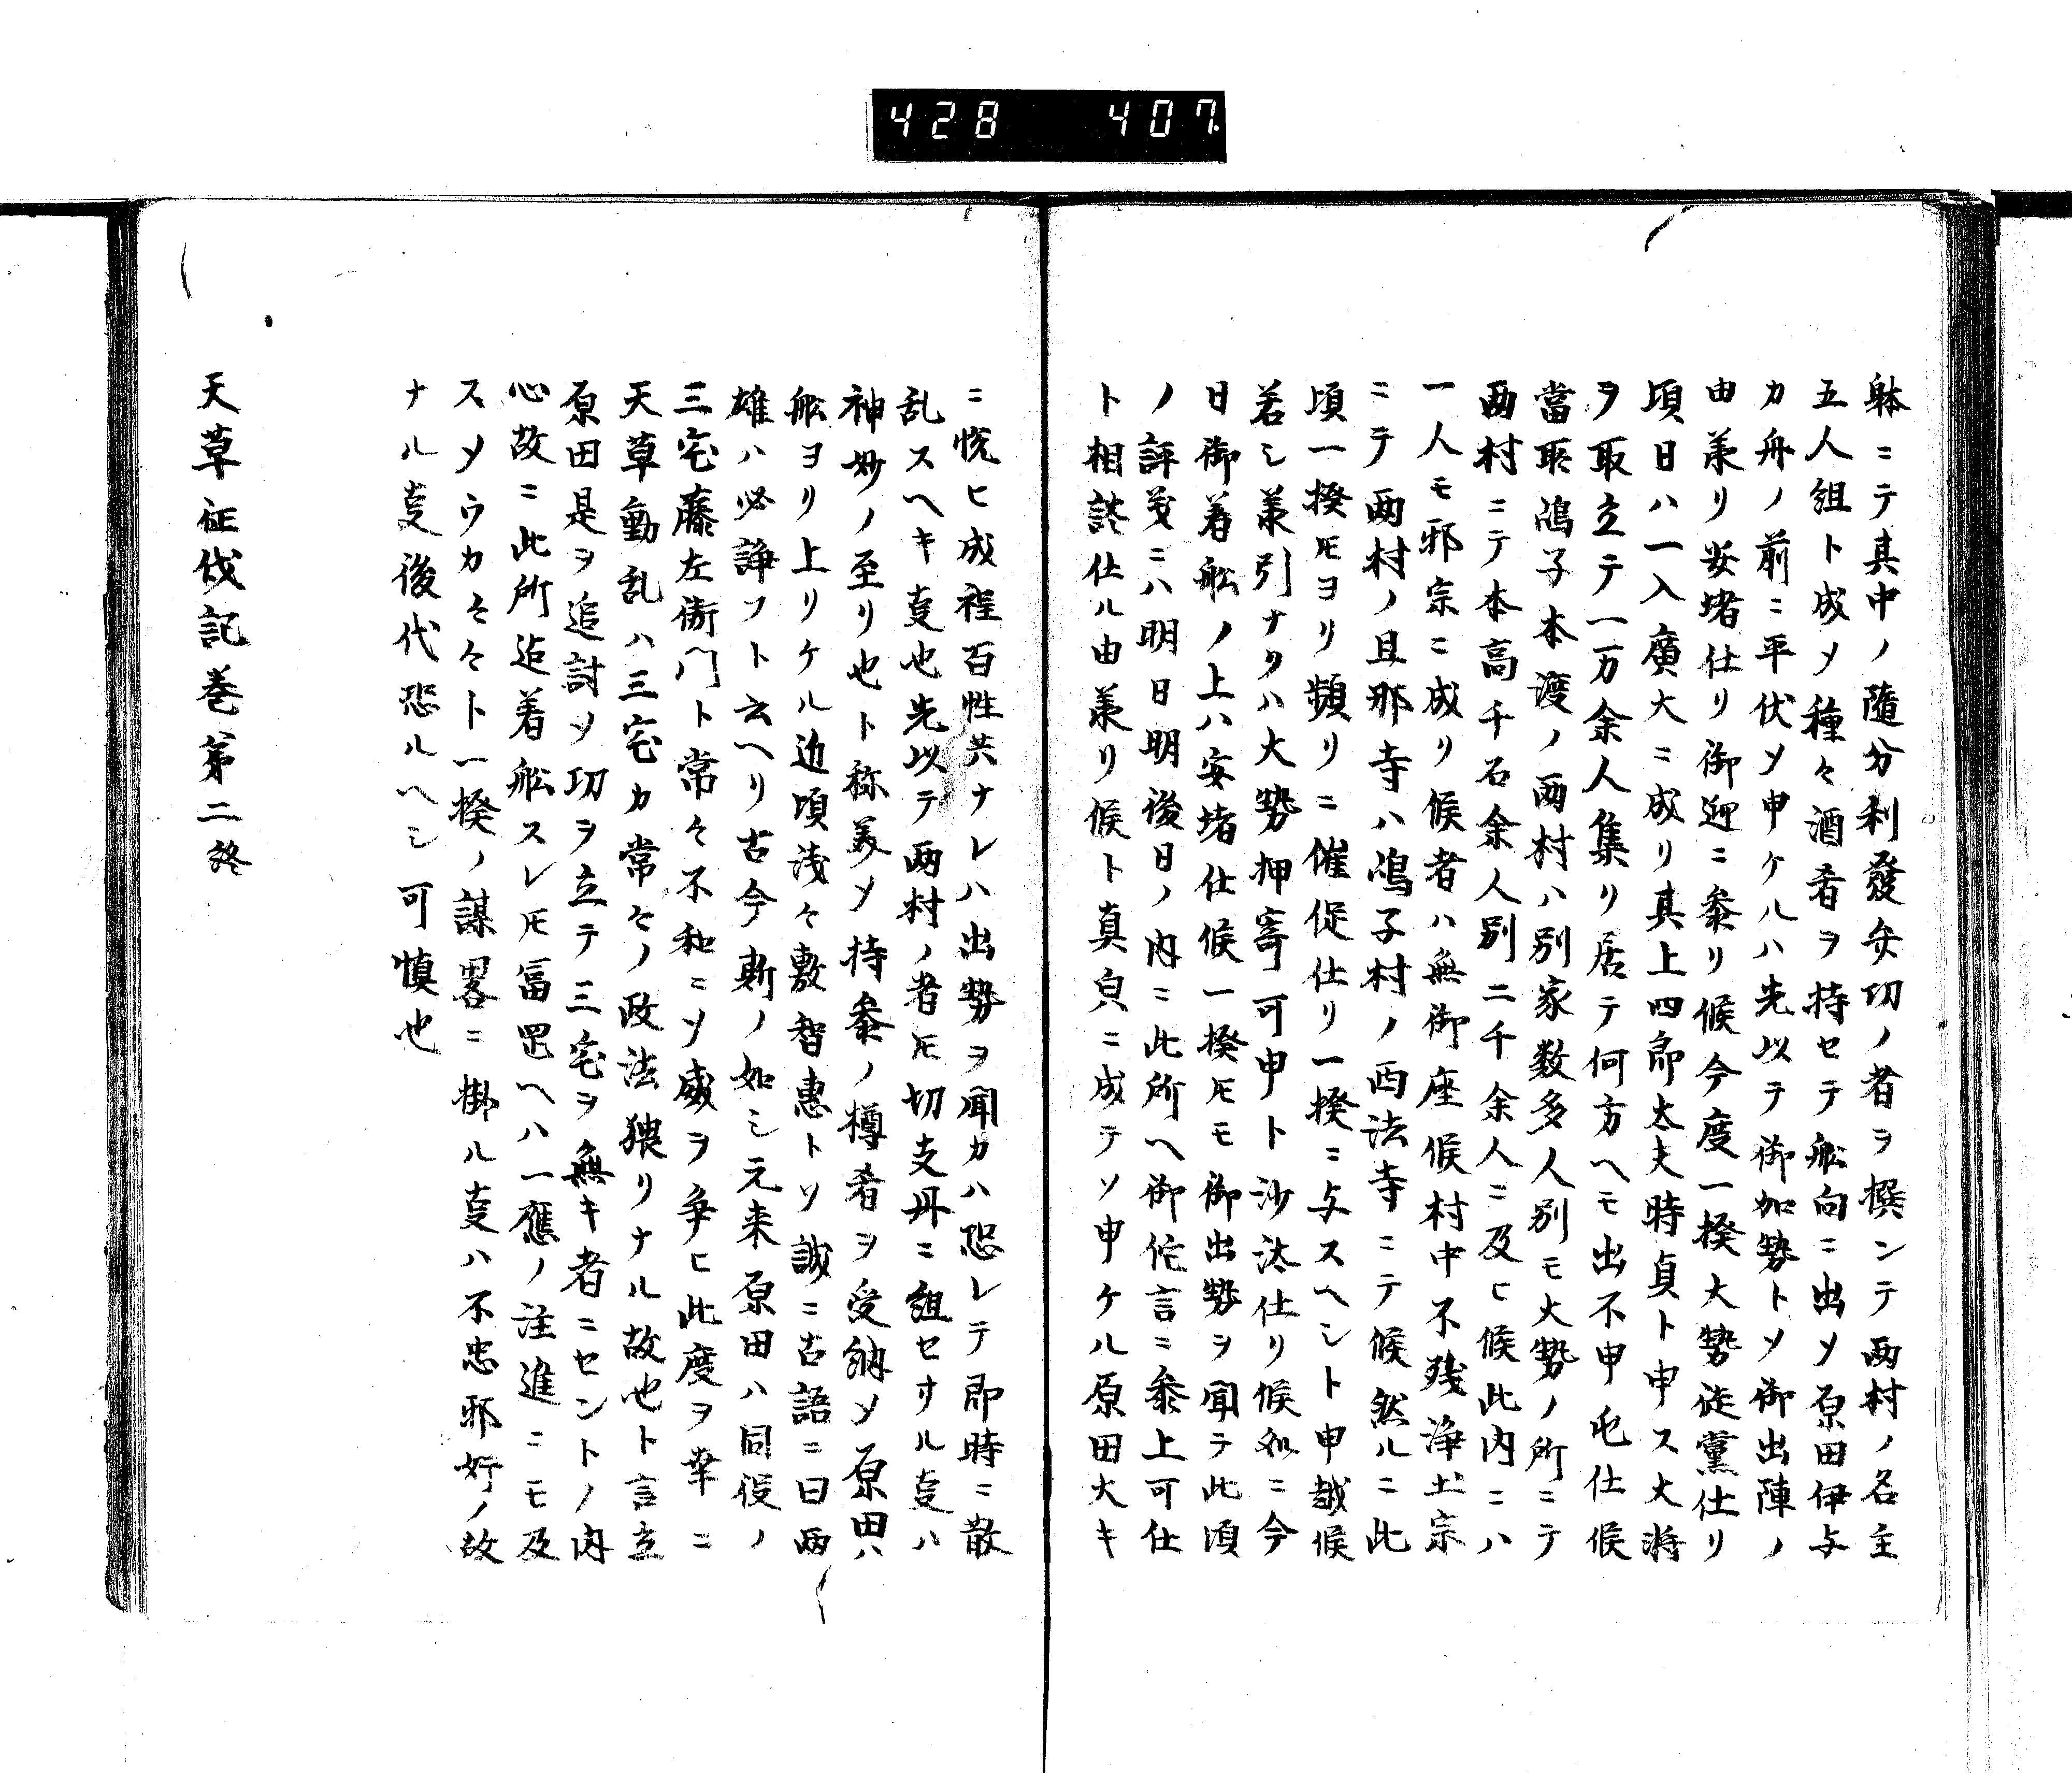 428 407
躰ニテ其中ノ隨分利發弁功ノ者ヲ撰ンテ両村ノ名主
五人組ト成〆種々酒肴ヲ持セテ舩向ニ出〆原田伊与
カ舟ノ前ニ平伏〆申ケルハ先以テ御加勢ト〆御出陣ノ
由承リ安堵仕リ御迎ニ参リ候今度一揆大勢徒黨仕リ
頃日ハ一入廣大ニ成リ其上四郎太夫時貞ト申ス大将
ヲ取立テ一万余人集リ居テ何方ヘモ出不申屯仕候
當所鴻子本渡ノ両村ハ別家数多人別モ大勢ノ所ニテ
両村ニテ本高千石余人別二千余人ニ及ヒ候此内ニハ
一人モ邪宗ニ成リ候者ハ無御座候村中不残浄土宗
ニテ両村ノ旦那寺ハ鴻子村ノ西法寺ニテ候然ルニ此
頃一揆𪜈ヨリ頻リニ催促仕リ一揆ニ与スヘシト申越候
若シ承引ナクハ大勢押寄可申ト沙汰仕リ候処ニ今
日御着舩ノ上ハ安堵仕候一揆𪜈モ御出勢ヲ聞テ此頃
ノ評義ニハ明日明後日ノ内ニ此所ヘ御侘言ニ参上可仕
ト相談仕ル由承リ候ト真皃ニ成テソ申ケル原田大キ
ニ悦ヒ成程百性共ナレハ出勢ヲ聞カハ恐レテ即時ニ散
乱スヘキ叓也先以テ両村ノ者𪜈切支丹ニ組セサル叓ハ
神妙ノ至リ也ト称美〆持参ノ樽肴ヲ受納〆原田ハ
舩ヨリ上リケル辺頃浅々敷智恵トソ誠ニ古語ニ曰両
雄ハ必諍フト云ヘリ古今斯ノ如シ元来原田ハ同役ノ
三宅藤左衛門ト常々不和ニ〆威ヲ争ヒ此度ヲ幸ニ
天草動乱ハ三宅カ常々ノ政法猥リナル故也ト言立
原田是ヲ追討〆功ヲ立テ三宅ヲ無キ者ニセントノ内
心故ニ此所迄着舩スレ𪜈冨岡ヘハ一應ノ注進ニモ及
ス〆ウカ々々ト一揆ノ謀畧ニ掛ル叓ハ不忠邪奸ノ故
ナル叓後代恐ルヘシ可慎也
天草征伐記巻第二終